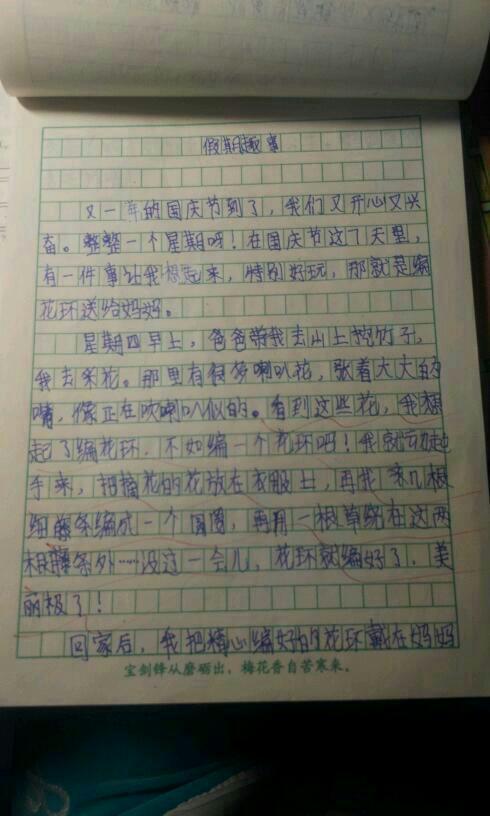 假期趣事
又一年的国庆节到了，我们又开心又兴
奋。整整一个星期呀！在国庆节这7天里，
有一件事让我想起来，特别好玩，那就是编
花环送给妈妈。
星期四早上，爸爸带我去山上挖竹子，
我去采花。那里有很多喇叭花，张着大大的
嘴，像正在吹喇叭似的。看到这些花，我想
起了编花环，不如编一个花环吧！我就动起
手来，把摘花的花放在衣服上，再找来几根
细藤条编成一个圆圈，再用一根草绕在这两
根藤条外……没过一会儿，花环就编好了，美
丽极了！
回家后，我把精心编好的花环戴在妈妈
宝剑锋从磨砺出，梅花香自苦寒来。